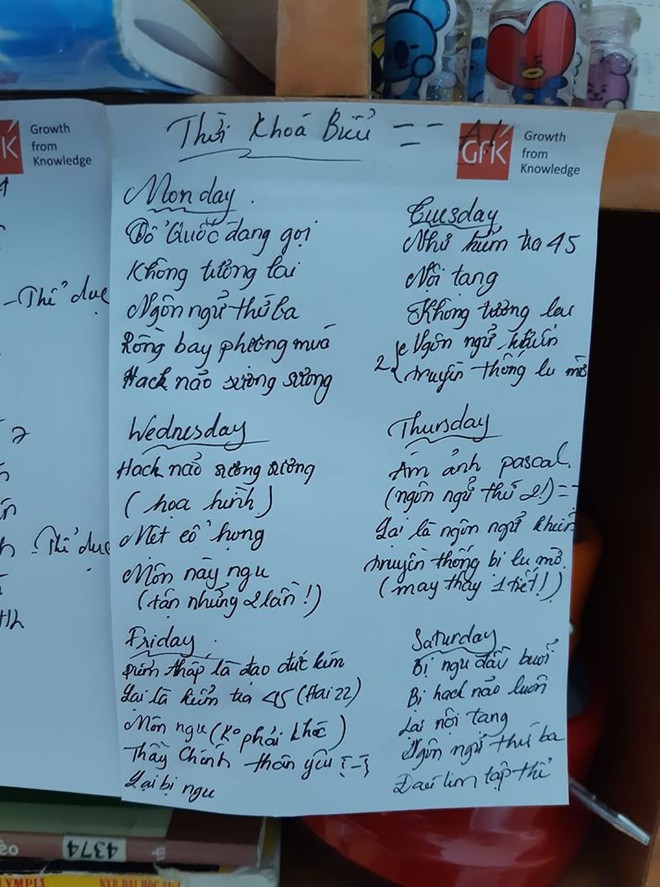 Growth
from
Knowledge
- Thể dục
- Thể dục
4374
YMPIA
Thời Khoá Biểu -- A1
GfK
Growth
from
Knowledge
Monday.
Tổ Quốc đang gọi
Không tương lai
Ngôn ngữ thứ ba
Rồng bay phượng múa
Hack não sương sương
Tuesday
Như kiểm tra 45
Nội tang
Không tương lai
Ngôn ngữ khiến
2 truyền thống lu mờ
Wednesday
Hack não sương sương
(họa hình)
Mệt cổ họng
Môn này ngu
(tận những 2 lần!)
Thursday
Ám ảnh pascal.
(ngôn ngữ thứ 2!) --
Lại là ngôn ngữ khiến
truyền thống bị lu mờ.
(may thay 1 tiết!)
Friday.
điểm thấp là đạo đức kém
Lại là kiểm tra 45 (Hai 22)
Môn ngu (ko phải khóc)
Thầy Chánh thân yêu {-}
Lại bị ngu
Saturday
Bị ngu đầu buổi
Bị hack não luôn
Lại nội tang
Ngôn ngữ thứ ba
Đau tim tập thể